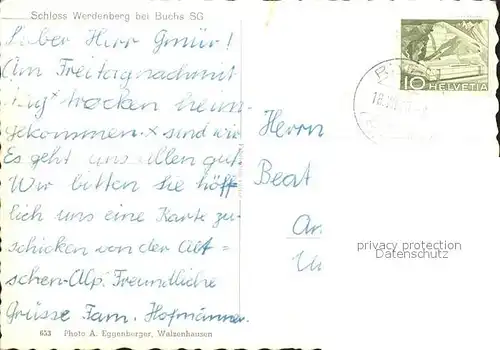 Schloss Werdenberg bei Buchs SG
Lieber Herr Gmür!
Am Freitagnachmit
tag x trocken heim-
gekommen. x sind wir
Es geht uns allen gut.
Wir bitten Sie höff
lich uns eine Karte zu-
schicken von der Alt =
schen-Alp. Freundliche
Grüsse Fam. Hofmänner.
653 Photo A. Eggenberger, Walzenhausen
10 HELVETIA
Herrn
Beat
privacy protection
Datenschutz